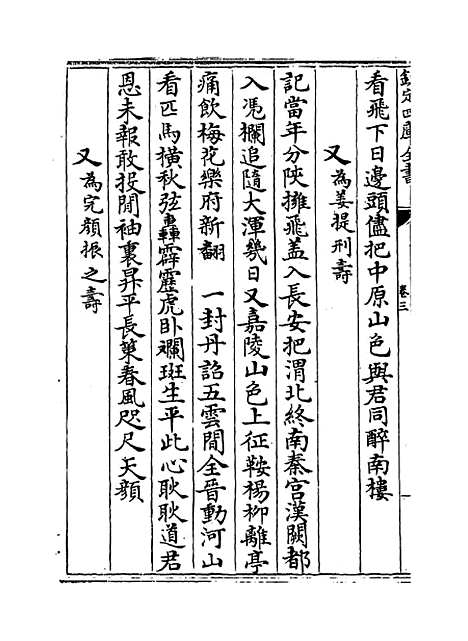 欽定四庫全書
卷三
看飛下日邊頭儘把中原山色與君同醉南樓
又為姜提刑壽
記當年分陝擁飛蓋入長安把渭北終南秦宮漢闕都
入凭攔追隨大渾幾日又嘉陵山色上征鞍楊柳離亭
痛飲梅花樂府新翻　一封丹詔五雲間全晉動河山
看匹馬橫秋弦轟霹靂虎臥斕斑生平此心耿耿道君
恩未報敢投閒袖裏昇平長策春風咫尺天顔
又為完顔振之壽